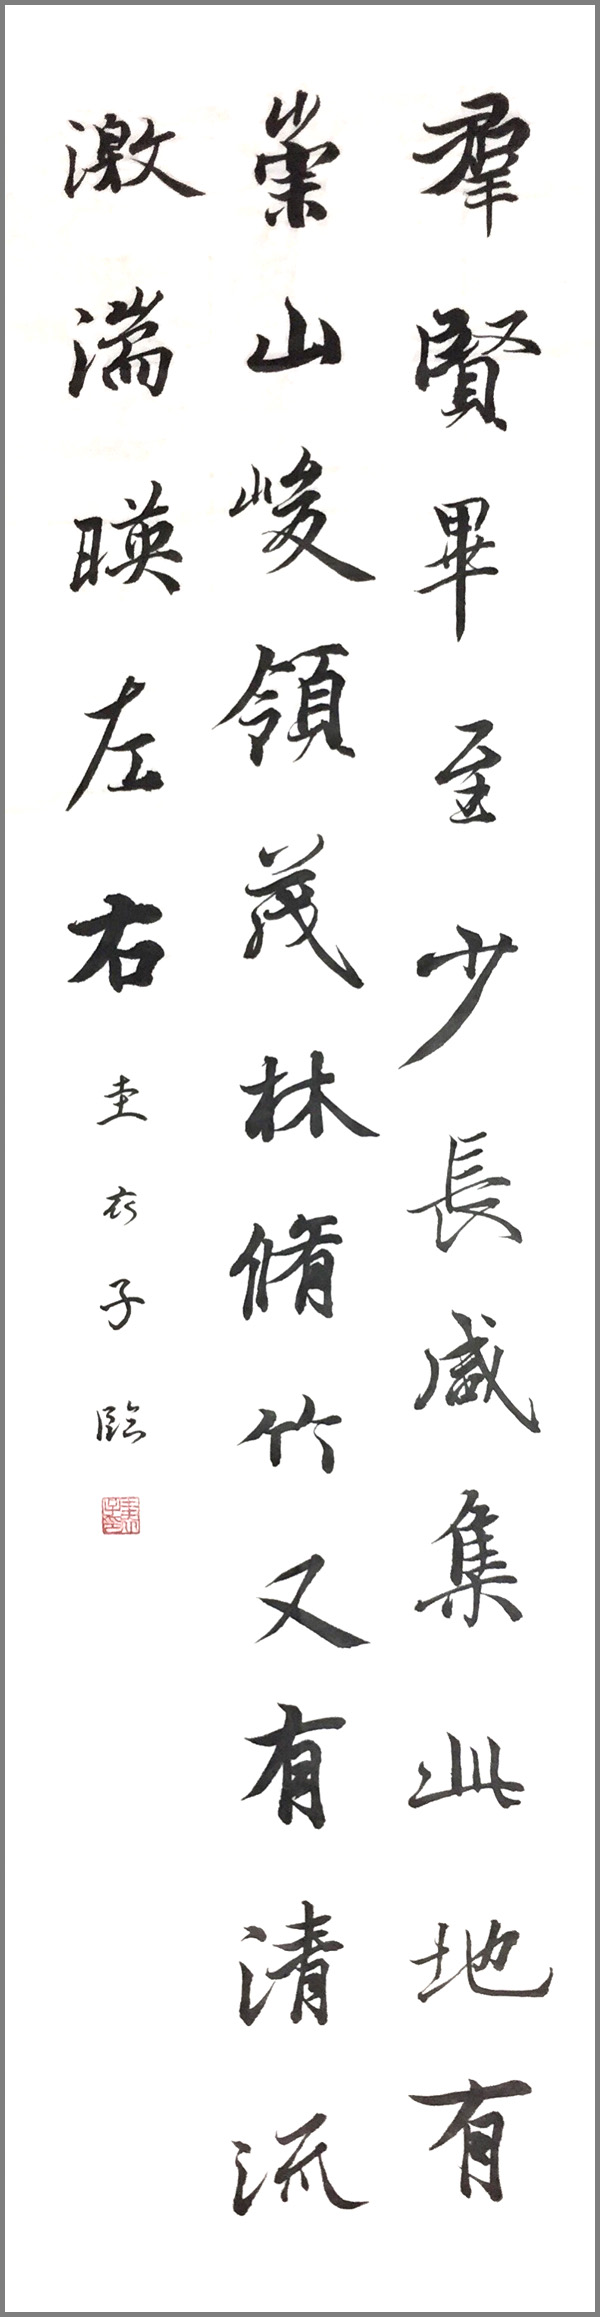 羣賢畢至少長咸集此地有
崇山峻領茂林脩竹又有清流
激湍暎左右
圭衣子臨